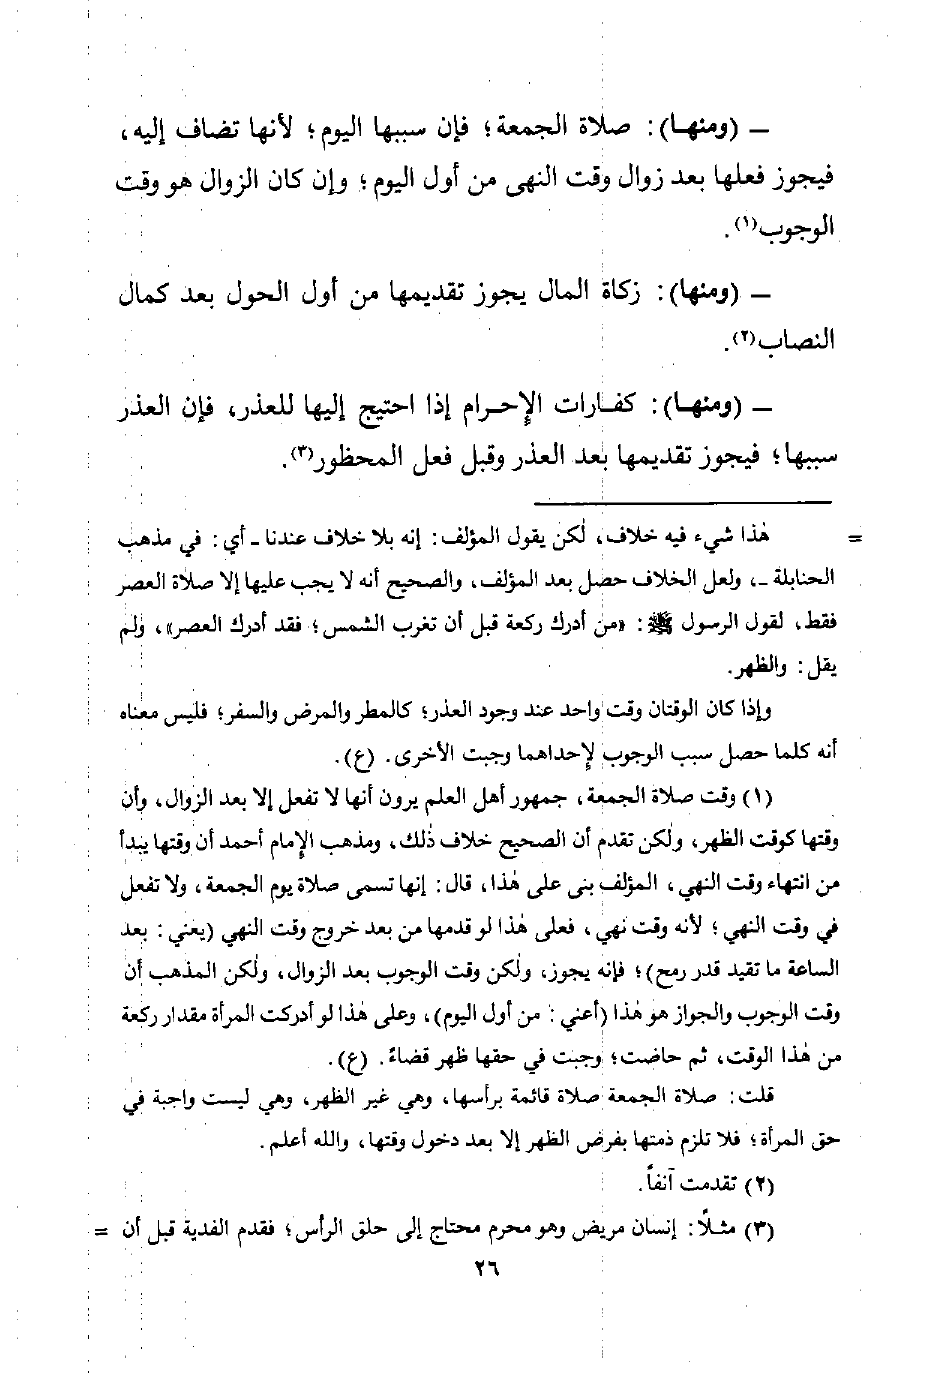 ـ (ومنهـا): صلاة الجمعة؛ فإن سببها اليوم؛ لأنها تضاف إليه،
فيجوز فعلها بعد زوال وقت النهى من أول اليوم؛ وإن كان الزوال هو وقت
الوجوب(١).
ـ (ومنها): زكاة المال يجوز تقديمها من أول الحول بعد كمال
النصاب(٢).
ـ (ومنهـا): كفـارات الإحـرام إذا احتيج إليها للعذر، فإن العذر
سببها؛ فيجوز تقديمها بعد العذر وقبل فعل المحظور(٣).
= هٰذا شيء فيه خلاف، لٰكن يقول المؤلف: إنه بلا خلاف عندنا ـ أي: في مذهب
الحنابلة ـ، ولعل الخلاف حصل بعد المؤلف، والصحيح أنه لا يجب عليها إلا صلاة العصر
فقط، لقول الرسول ﷺ: «من أدرك ركعة قبل أن تغرب الشمس؛ فقد أدرك العصر»، ولم
يقل: والظهر.
وإذا كان الوقتان وقت واحد عند وجود العذر؛ كالمطر والمرض والسفر؛ فليس معناه
أنه كلما حصل سبب الوجوب لإحداهما وجبت الأخرى. (ع).
(١) وقت صلاة الجمعة، جمهور أهل العلم يرون أنها لا تفعل إلا بعد الزوال، وأن
وقتها كوقت الظهر، ولٰكن تقدم أن الصحيح خلاف ذٰلك، ومذهب الإمام أحمد أن وقتها يبدأ
من انتهاء وقت النهي، المؤلف بنى على هٰذا، قال: إنها تسمى صلاة يوم الجمعة، ولا تفعل
في وقت النهي؛ لأنه وقت نهي، فعلى هٰذا لو قدمها من بعد خروج وقت النهي (يعني: بعد
الساعة ما تقيد قدر رمح)؛ فإنه يجوز، ولٰكن وقت الوجوب بعد الزوال، ولٰكن المذهب أن
وقت الوجوب والجواز هو هٰذا (أعني: من أول اليوم)، وعلى هٰذا لو أدركت المرأة مقدار ركعة
من هٰذا الوقت، ثم حاضت؛ وجبت في حقها ظهر قضاءً. (ع).
قلت: صلاة الجمعة صلاة قائمة برأسها، وهي غير الظهر، وهي ليست واجبة في
حق المرأة؛ فلا تلزم ذمتها بفرض الظهر إلا بعد دخول وقتها، والله أعلم.
(٢) تقدمت آنفاً.
(٣) مثـلاً: إنسان مريض وهو محرم محتاج إلى حلق الرأس؛ فقدم الفدية قبل أن =
٢٦